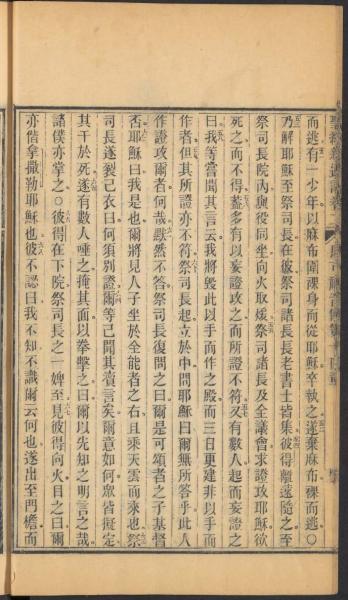 而逃有一少年以麻布圍裸身而從耶穌卒執之遂棄麻布裸而逃〇
乃解耶穌至祭司長在彼祭司諸長長老書士皆集彼得離遠隨之至
祭司長院內與役同坐向火取煖祭司諸長及全議會求證攻耶穌欲
死之而不得蓋多有以妄證攻之而所證不符又有數人起而妄證之
曰我等嘗聞其言云我將毀此以手而作之殿而三日更建非以手而
作者但其所證亦不符祭司長起立於中問耶穌曰爾無所答乎此人
作證攻爾者何哉默然不答祭司長復問之曰爾是可頌者之子基督
否耶穌曰我是也爾將見人子坐於全能者之右且乘天雲而來也祭
司長遂裂己衣曰何須別證爾等已聞其賣言矣爾意如何眾皆擬定
其干於死遂有數人唾之掩其面以拳擊之曰爾以先知之明言之哉
諸僕亦掌之〇彼得在下院祭司長之一婢至見彼得向火目之曰爾
亦偕拿撒勒耶穌也彼不認曰我不知不識爾云何也遂出至門檐而